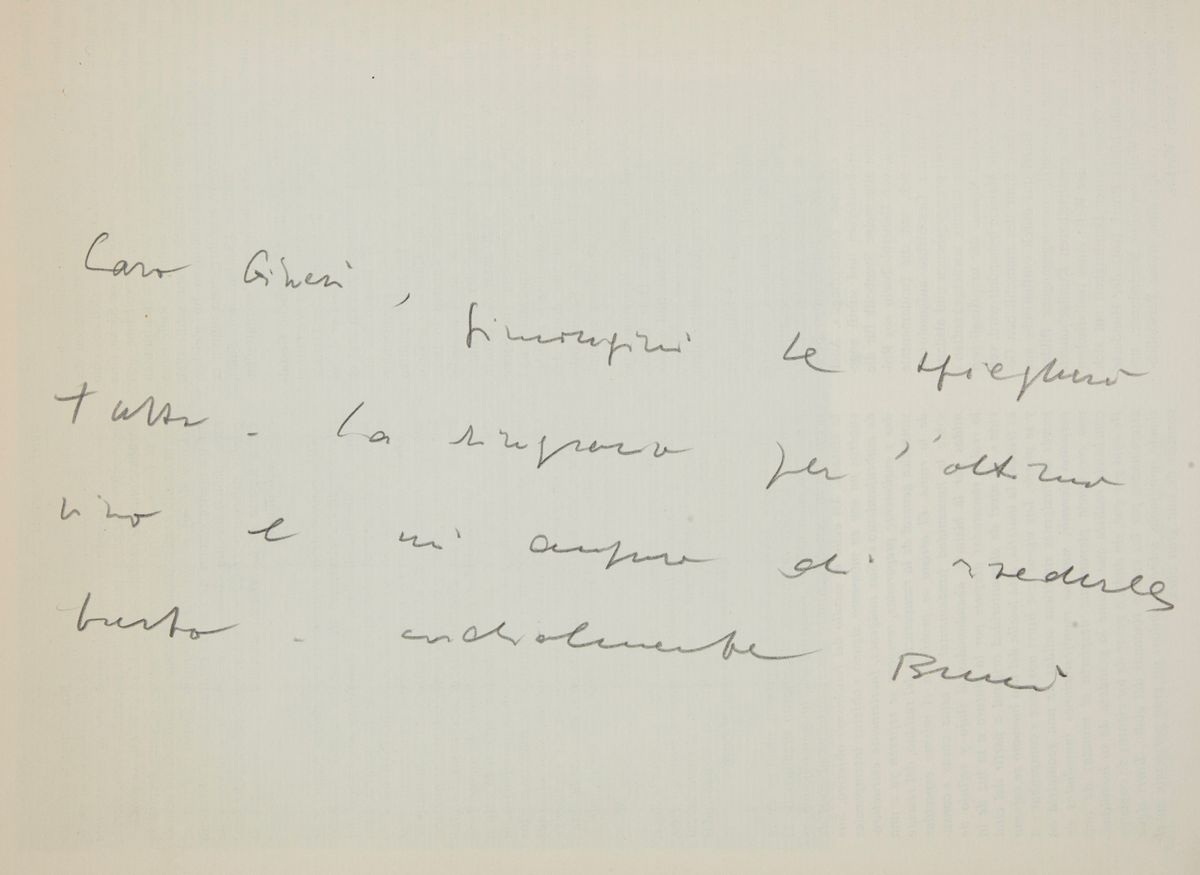 Caro
le spiegherò
tutto - La ringrazio per l'ottimo
vino e mi auguro di rivederla
presto - cordialmente Bruni